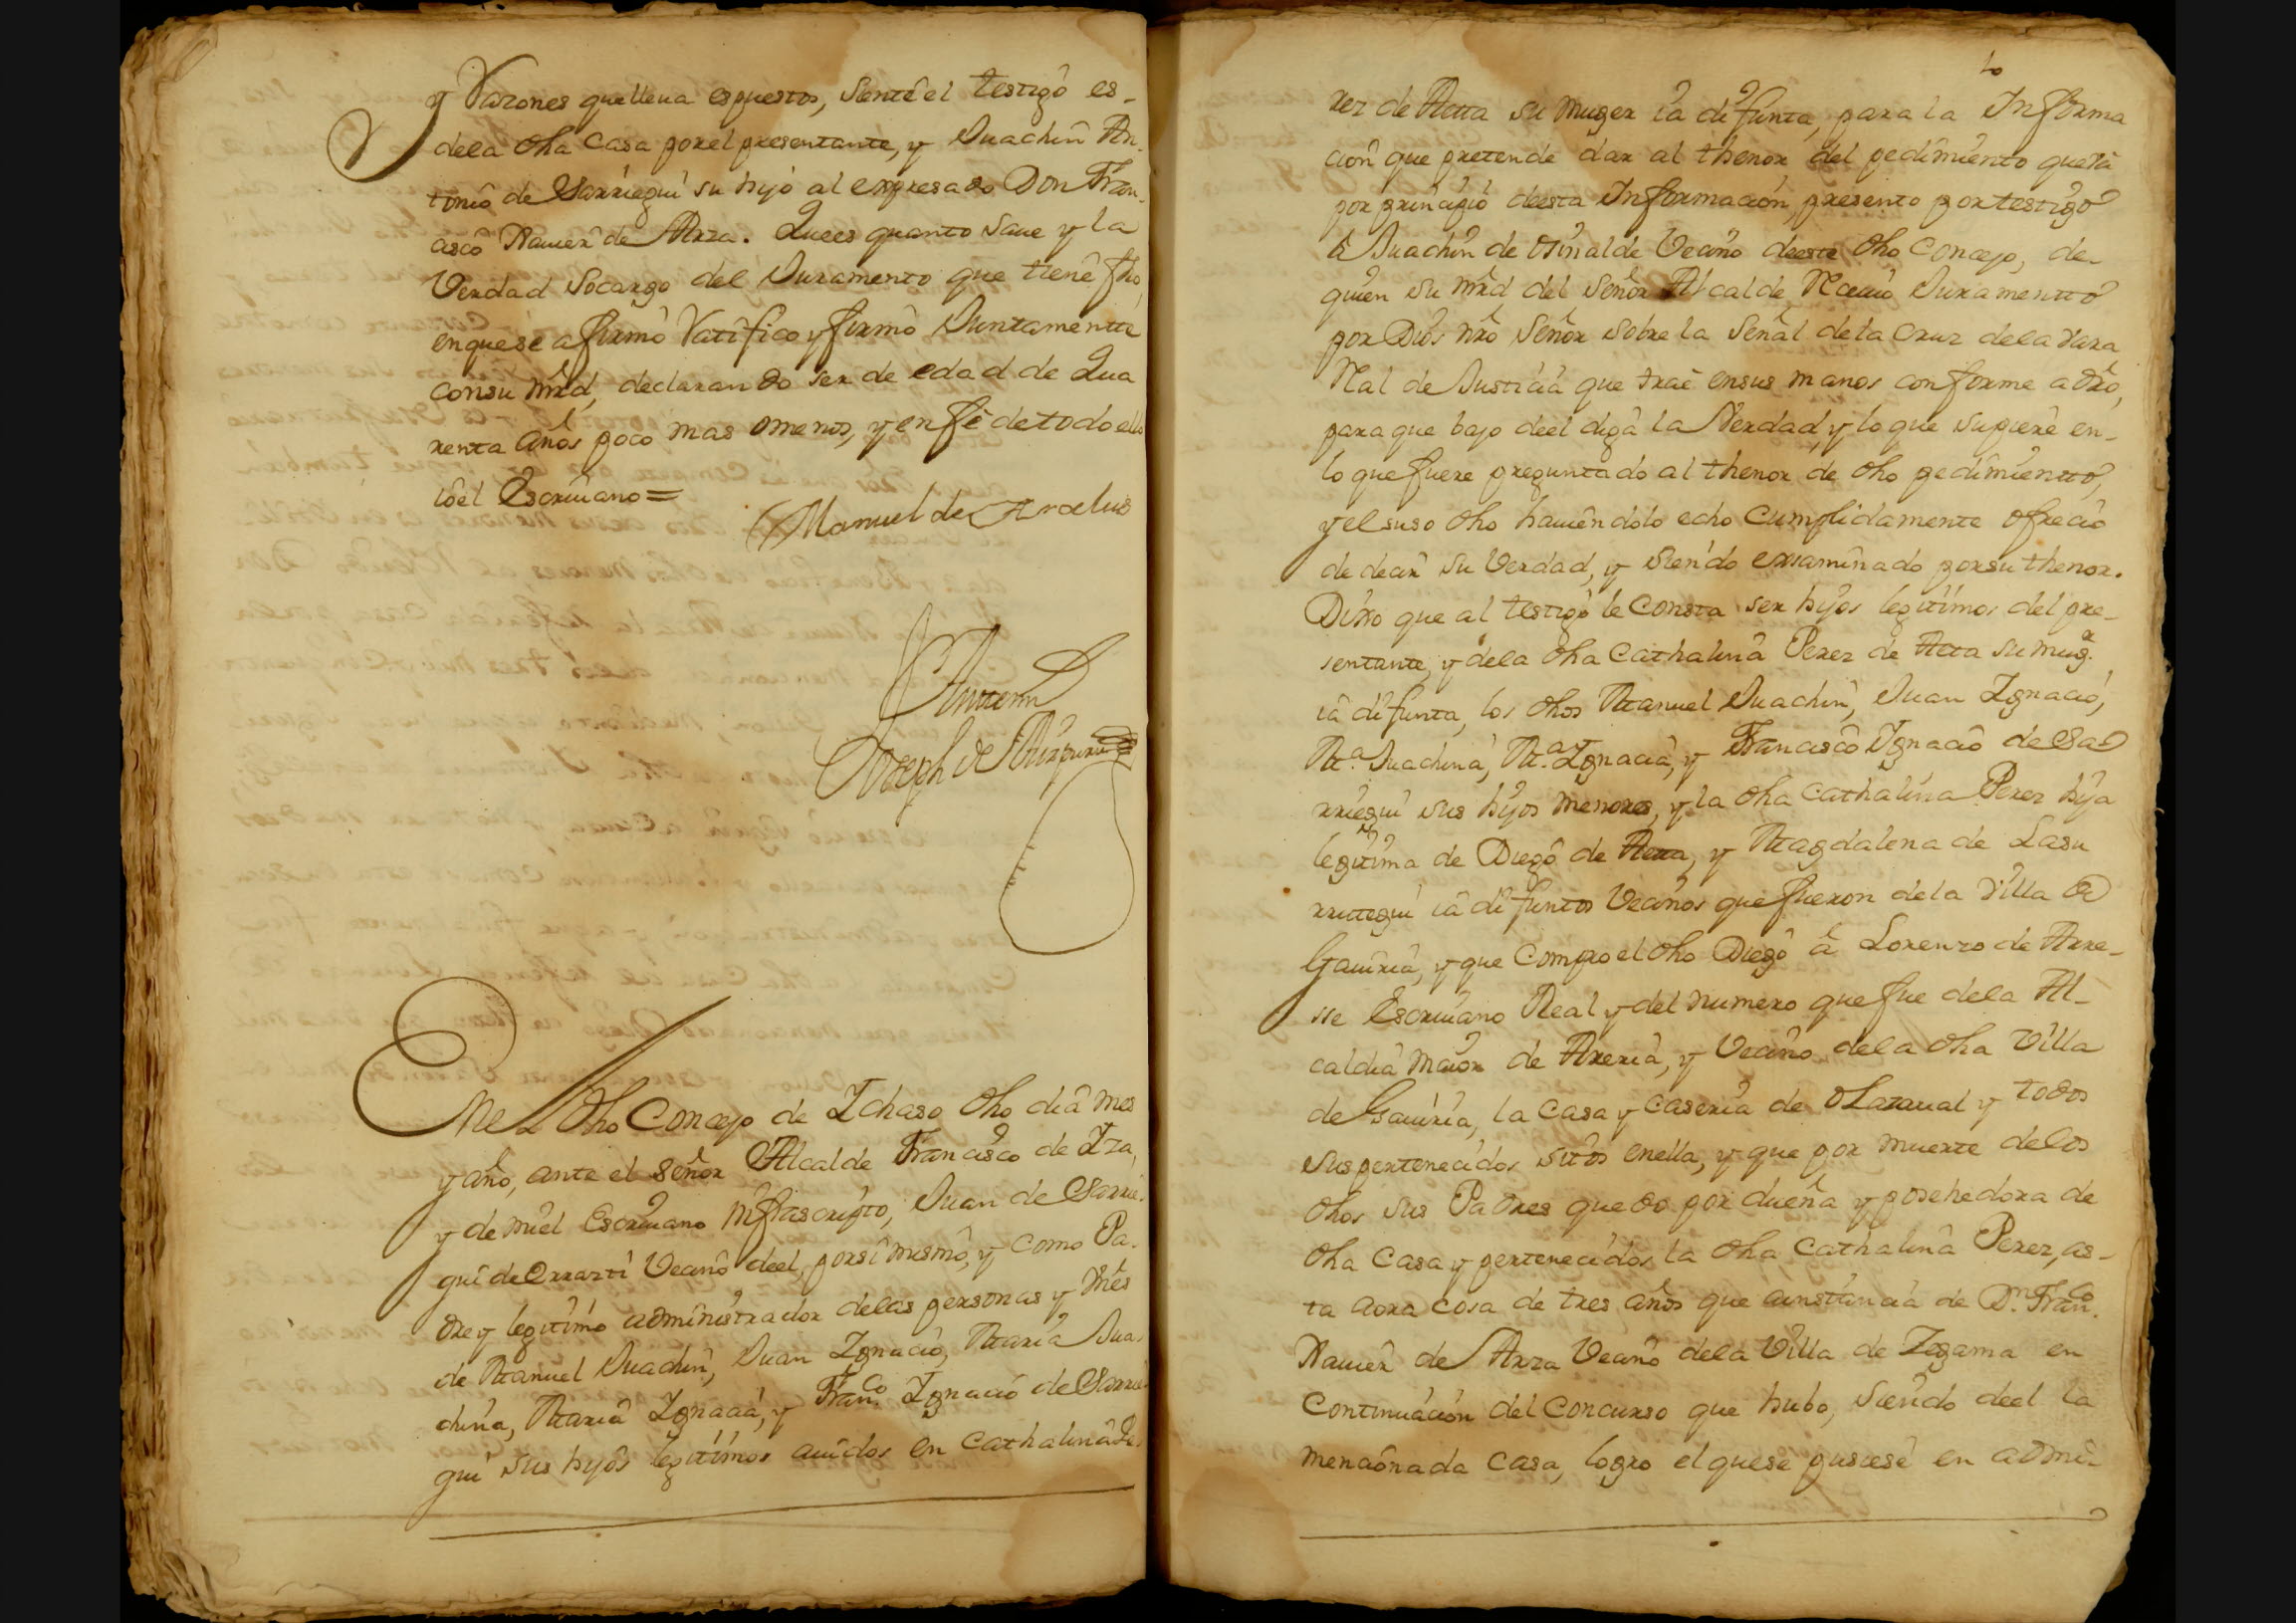 y Razones que lleua espuestos, siente el testigo es-
dela dha Casa por el presentante, y Juachin An-
tonio de Sarriegui su hijo al expresado Don Fran-
cisco Xauier de Arza. Que es quanto saue y la
Verdad socargo del Juramento que tiene fho,
en que se afirmò Ratifico y firmò Juntamentte
con su mrd, declarando ser de edad de Qua
renta años poco mas omenos, y en fè de todo ello
iò el Escriuano =
Manuel de Aracelus
Antemi
Joseph de Aizpuru
Enel dho Concejo de Ichaso dho dia mes
y año, ante el señor Alcalde Francisco de Iza,
y de mi el Escriuano Infrascripto, Juan de Sarrie-
gui de Errarti Vecino deel, por si mismo, y como Pa-
dre y legitimo administrador delas personas y vnes
de Manuel Juachin, Juan Ignacio, Maria Jua-
china, Maria Ignacia, y Franco. Ignacio de Sarrie-
gui sus hijos legitimos auidos en Cathalina Pe-
10
rez de Aeta su muger ia difunta, para la Informa
cion que pretende dar al thenor del pedimiento que và
por principio deesta Informacion, presento por testigo
à Juachin de Osinalde Vecino deeste dho Concejo, de-
quien su mrd del Señor Alcalde Reciuio Juramentto
por Dios nro Señor sobre la Señal dela Cruz dela Vara
Real de Justicia que trae ensus manos conforme a dro,
para que bajo deel diga la Verdad, y lo que supiere en-
lo que fuere preguntado al thenor de dho pedimientto,
y el suso dho hauiendolo echo Cumplidamente ofrecio
de decir su Verdad, y siendo exsaminado por su thenor.
Dixo que al testigo le Consta ser hijos legitimos del pre-
sentante, y dela dha Cathalina Perez de Aeta su mugr.
ia difunta, los dhos Manuel Juachin, Juan Ignacio,
Ma. Juachina, Ma. Ignacia, y Francisco Ignacio de Sa-
rriegui sus hijos menores, y la dha Cathalina Perez hija
legitima de Diego de Aeta, y Magdalena de Lasu
rrutegui ia difuntos Vecinos que fueron dela Villa de
Gauiria, y que Compro el dho Diego à Lorenzo de Arre-
sse Escriuano Real y del numero que fue dela Al-
caldia maior de Areria, y Vecino dela dha Villa
de Gauiria, la Casa y Caseria de Olazaual y todos
sus pertenecidos sitos enella, y que por muerte delos
dhos sus Padres quedo por dueña y posehedora de
dha Casa y pertenecidos la dha Cathalina Perez, as-
ta aora cosa de tres años que a instancia de Dn. Franco.
Xauier de Arza Vecino dela Villa de Zegama en
Continuacion del Concurso que hubo, siendo deel la
mencionada Casa, logro el que se pusiese en admi-